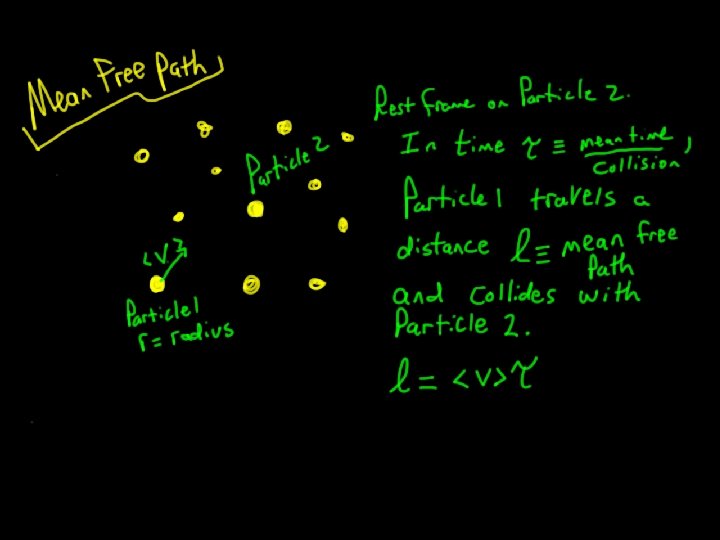 Mean Free Path
Particle 2
<V>
Particle 1
r = radius
Rest frame on Particle 2.
In time τ ≡ mean time / Collision,
Particle 1 travels a
distance l ≡ mean free
Path
and Collides with
Particle 2.
l = <v>τ